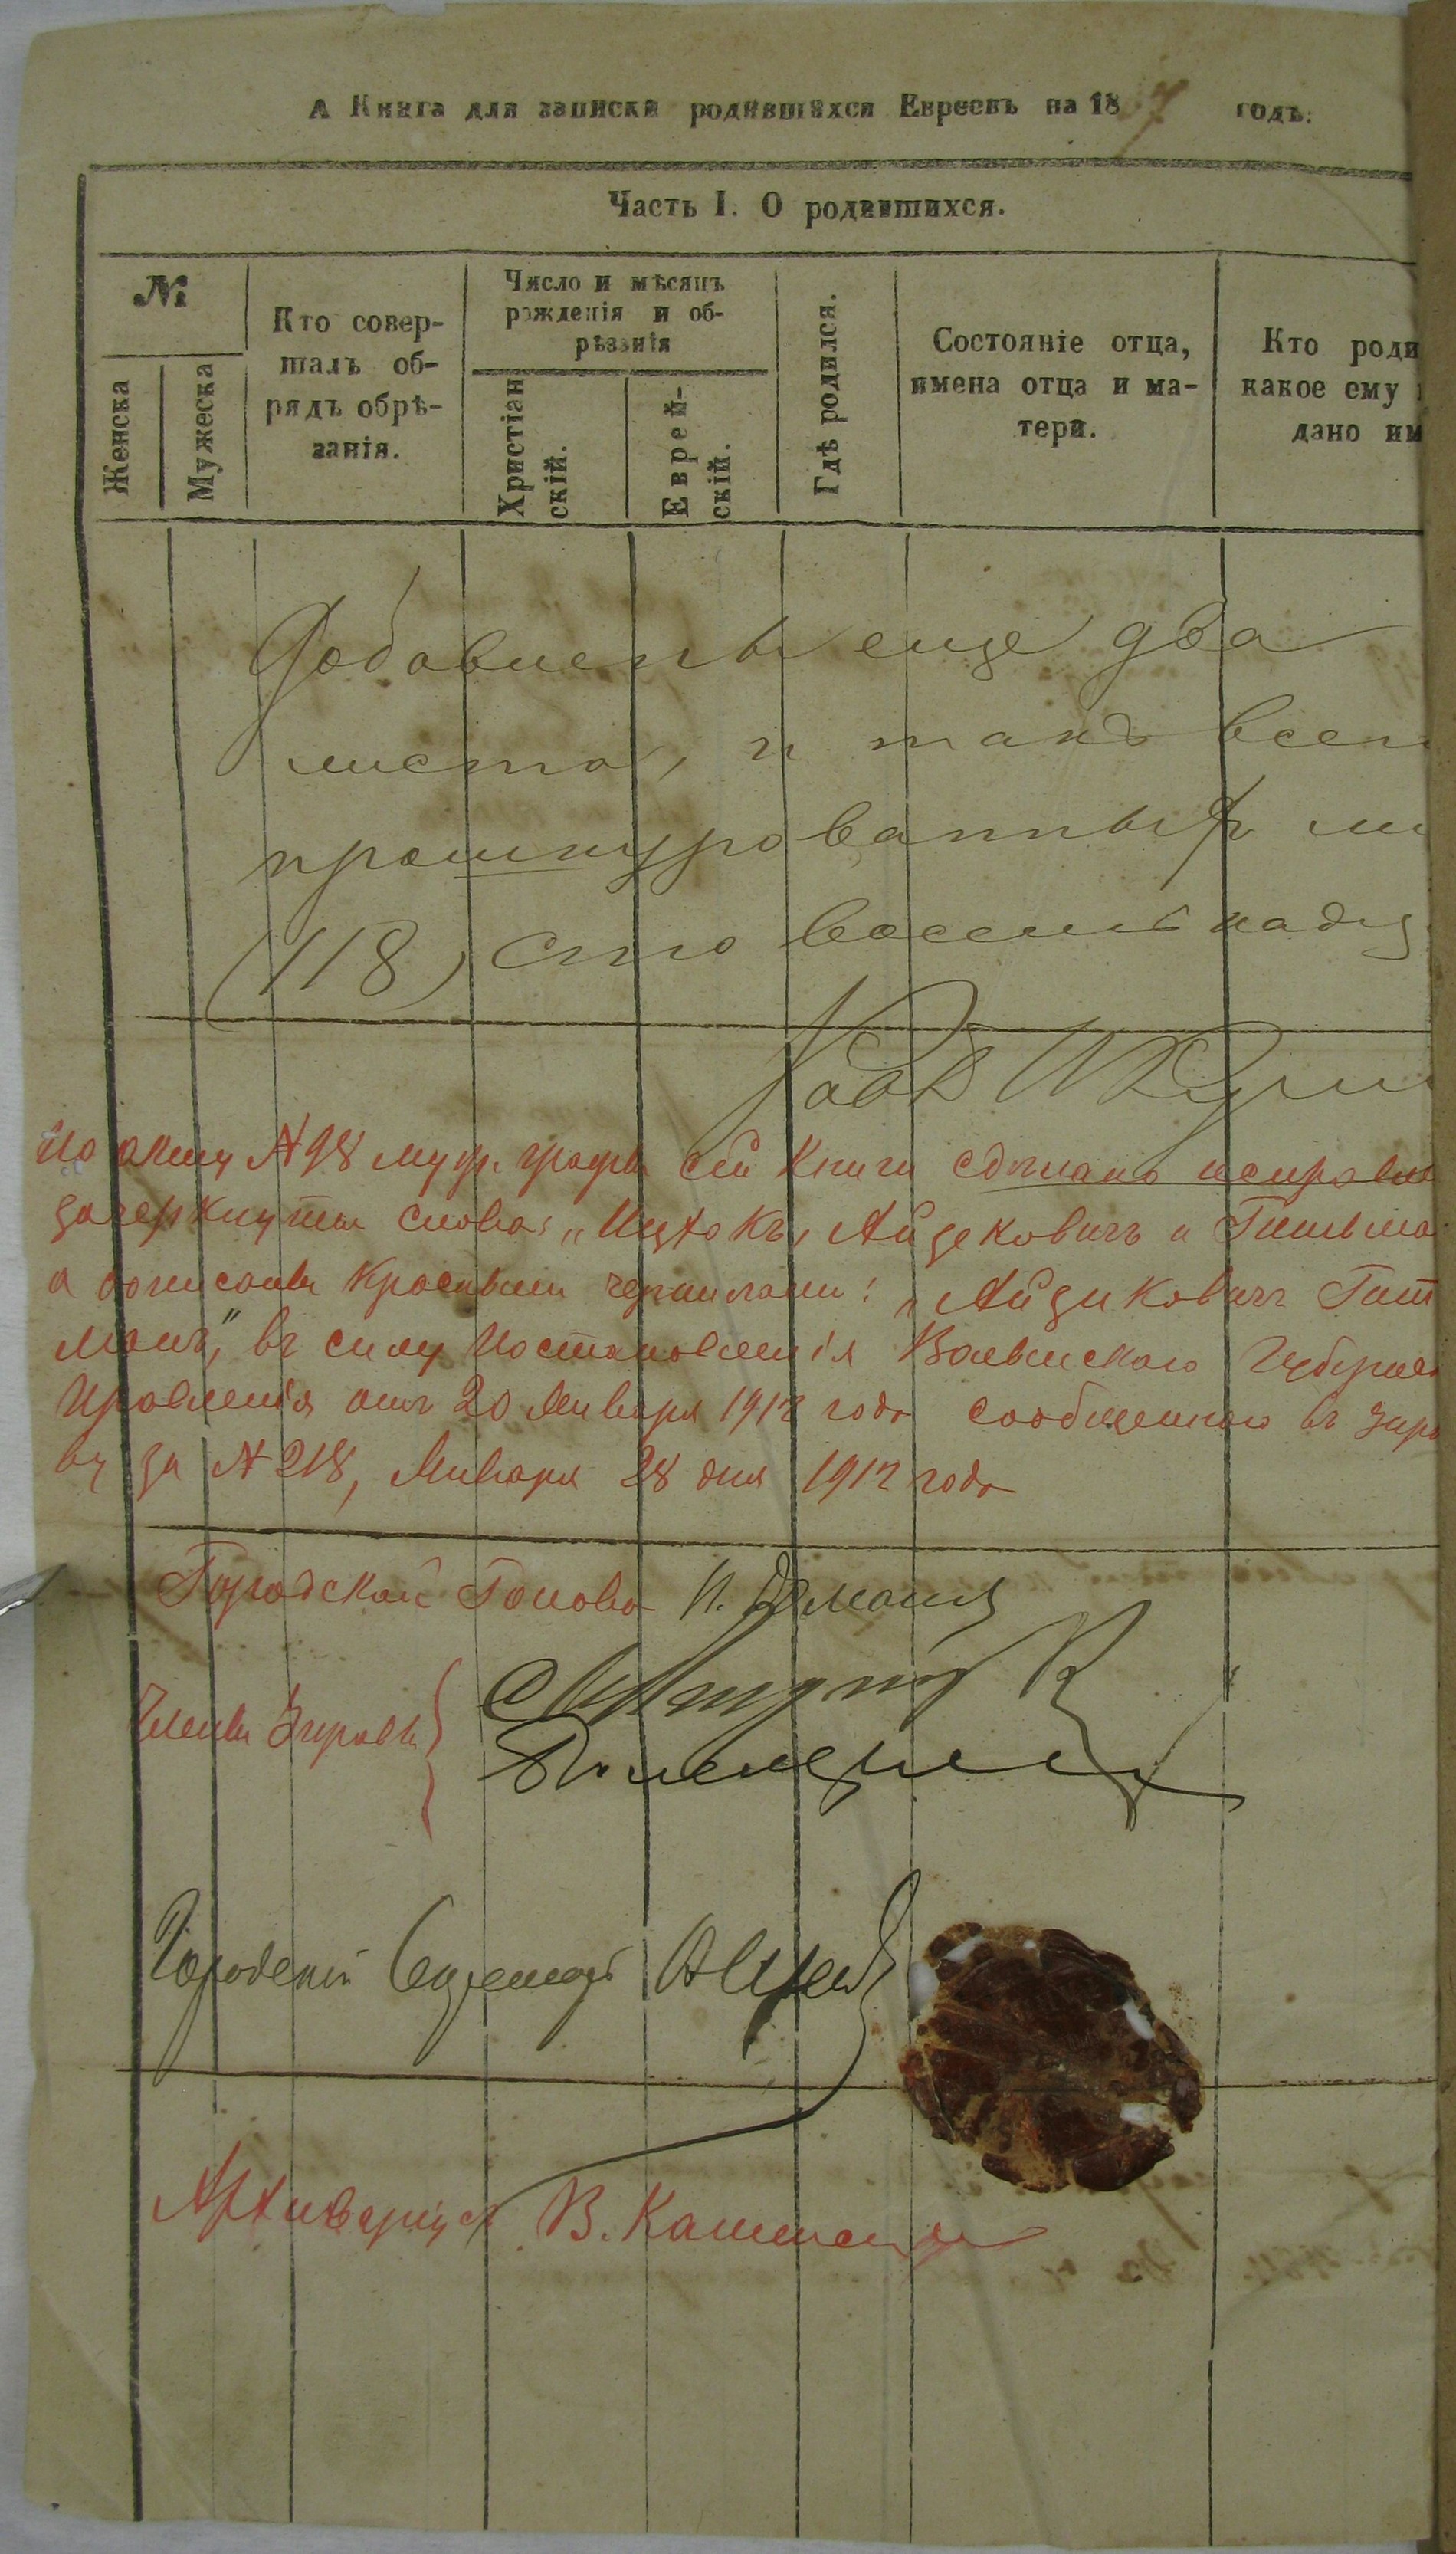 А Книга для записки родившихся Евреевъ на 18 7 годъ.
Часть I. О родившихся.
№
Женска
Мужеска
Кто совер-
шалъ об-
рядъ обрѣ-
занія.
Число и мѣсяцъ
рожденія и об-
рѣзанія
Христіан
скій.
Еврей-
скій.
Гдѣ родился.
Состояніе отца,
имена отца и ма-
тери.
Кто роди
какое ему
дано им
Добавлены еще два
листа, и такъ всего
прошнурованныхъ ли
(118) сто восемнадц
По акту №98 муж. графы сей Книги сдѣлано исправле
зачеркнуты слова: „Ицхокъ, Айзековичъ и Гительма
а дописаны красными чернилами: „Айзиковичъ Гит
манъ," въ силу Постановленія Волынскаго Губернс
Правленія отъ 20 Января 1912 года сообщеннаго въ Упра
ву за №218, Января 28 дня 1912 года
Городской Голова
Члены Управы
Городской Секретарь
Архиваріусъ В.